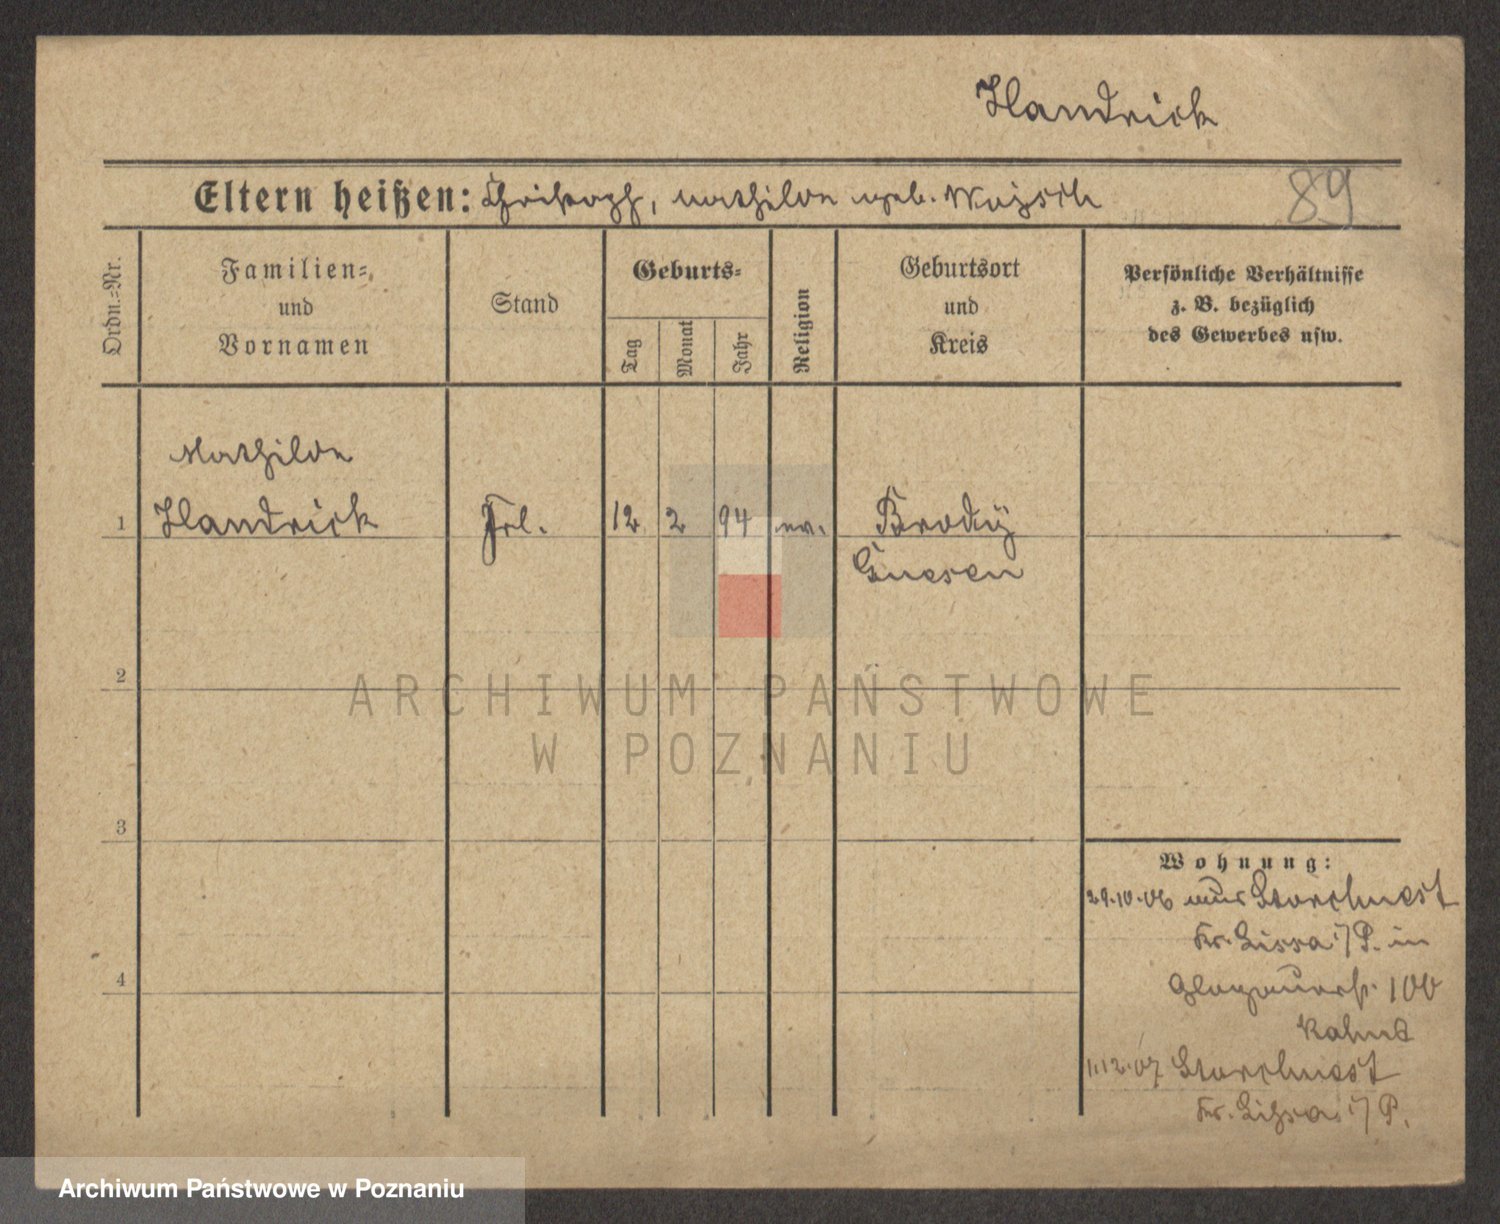 Handrick
Eltern heißen: Christoph, Mathilde geb.
89
Ordn.=Nr.
Familien=
und
Vornamen
Stand
Geburts=
Tag
Monat
Jahr
Religion
Geburtsort
und
Kreis
Persönliche Verhältnisse
z. B. bezüglich
des Gewerbes usw.
Mathilde
1 Handrick Frl. 12 2 94 ev. Brody
Gnesen
2
3
4
Wohnung:
29.10.06 aus Storchnest
Kr. Lissa i/P. in
Glogauerstr. 100
1.12.07 Storchnest
Kr. Lissa i/P.
ARCHIWUM PAŃSTWOWE
W POZNANIU
Archiwum Państwowe w Poznaniu